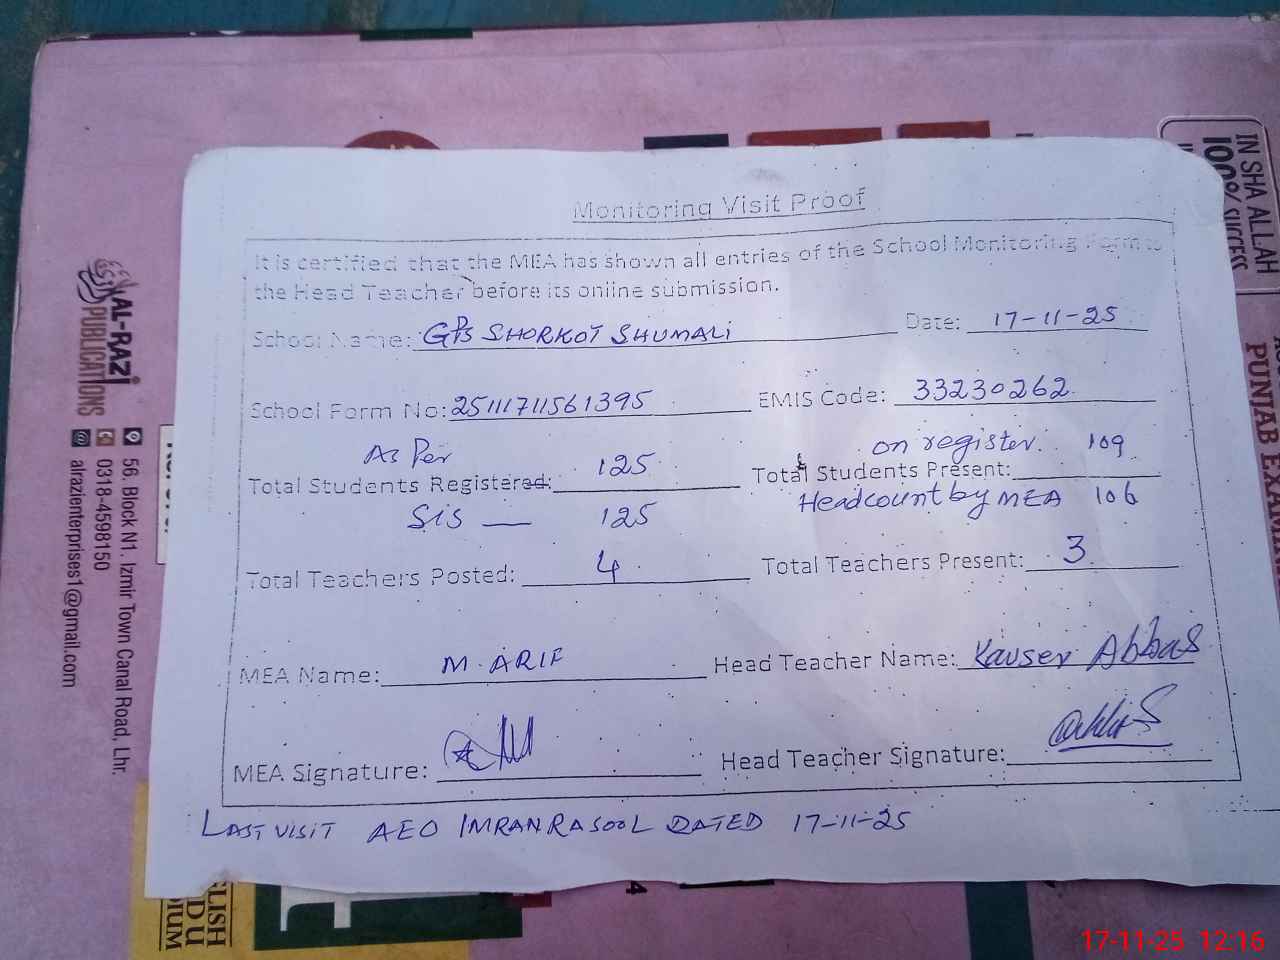 Monitoring Visit Proof
It is certified that the MEA has shown all entries of the School Monitoring Form to
the Head Teacher before its online submission.
School Name: GPS SHORKOT SHUMALI Date: 17-11-25
School Form No: 25111711561395 EMIS Code: 33230262
As Per on register. 109
Total Students Registered: 125 Total Students Present:
SIS — 125 Headcount by MEA 106
Total Teachers Posted: 4 Total Teachers Present: 3
MEA Name: M. ARIF Head Teacher Name: Kauser Abbas
MEA Signature: Head Teacher Signature:
LAST VISIT AEO IMRAN RASOOL DATED 17-11-25
AL-RAZI
PUBLICATIONS
56, Block N1, Izmir Town Canal Road, Lhr.
0318-4598150
alrazienterprises1@gmail.com
IN SHA ALLAH
100% SUCCESS
PUNJAB
17-11-25 12:16